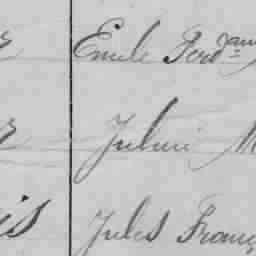 Emile Ferd
Julien M
is Jules Franç